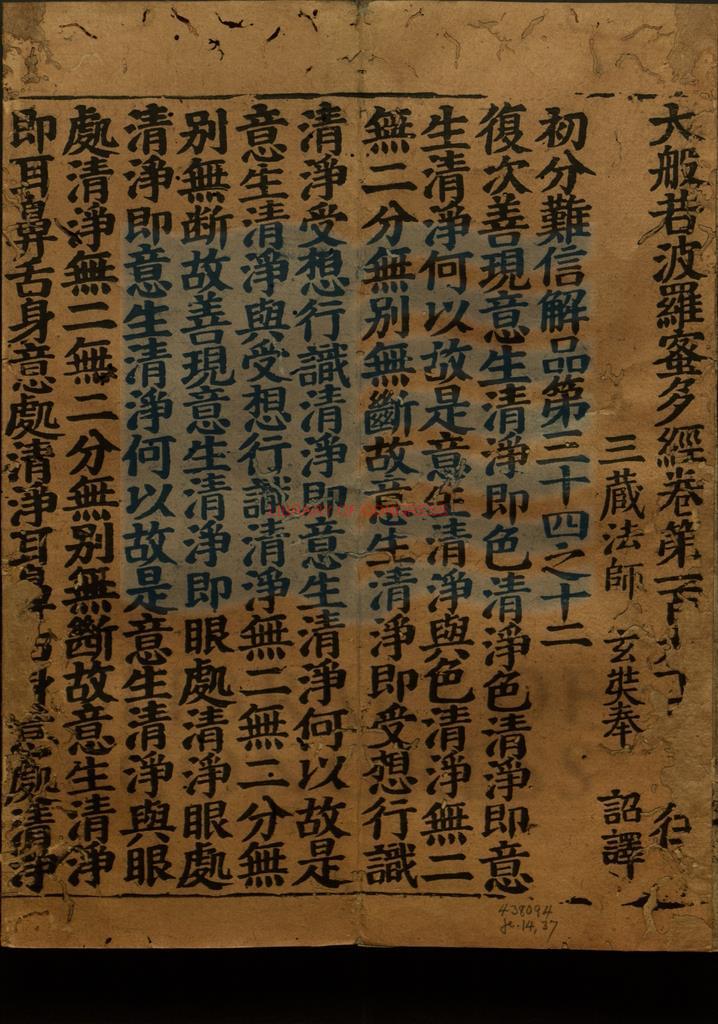 大般若波羅蜜多經卷第一百
三藏法師 玄奘奉 詔譯
初分難信解品第三十四之十二
復次善現意生清淨即色清淨色清淨即意
生清淨何以故是意生清淨與色清淨無二
無二分無別無斷故意生清淨即受想行識
清淨受想行識清淨即意生清淨何以故是
意生清淨與受想行識清淨無二無二分無
別無断故善現意生清淨即眼處清淨眼處
清淨即意生清淨何以故是意生清淨與眼
處清淨無二無二分無別無斷故意生清淨
即耳鼻舌身意處清淨耳鼻身意處清淨
LIBRARY OF CONGRESS
438094
14,37